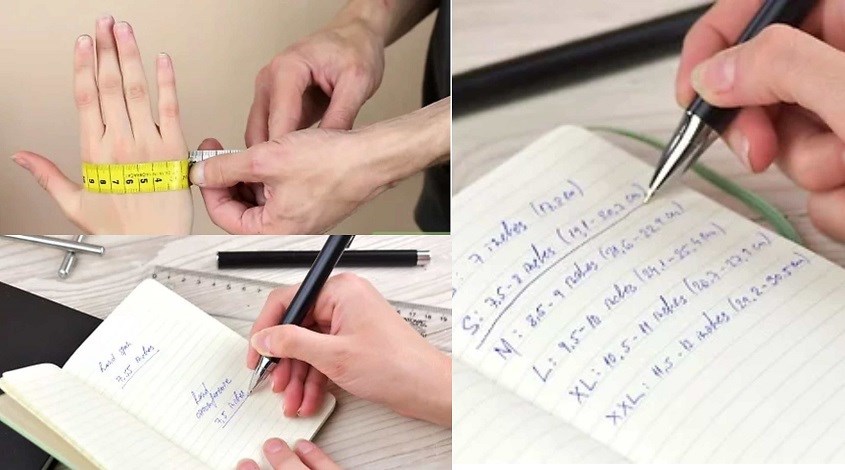 9 8 7 6 5 4
Hand span
7,55 inches
Hand
circumference
7,5 inches
: 7 inches (17,8 cm)
S: 7,5-8 inches (19,1-20,3 cm)
M: 8,5-9 inches (21,6-22,9 cm)
L: 9,5-10 inches (24,1-25,4 cm)
XL: 10,5-11 inches (26,7-27,9 cm)
XXL: 11,5-12 inches (29,2-30,5 cm)